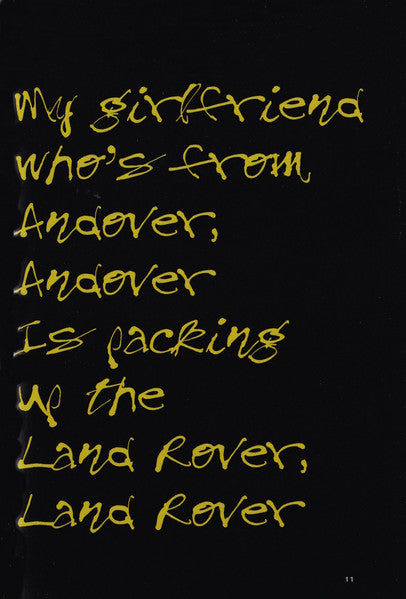 My girlfriend
who's from
Andover,
Andover
Is packing
up the
Land Rover,
Land Rover
11